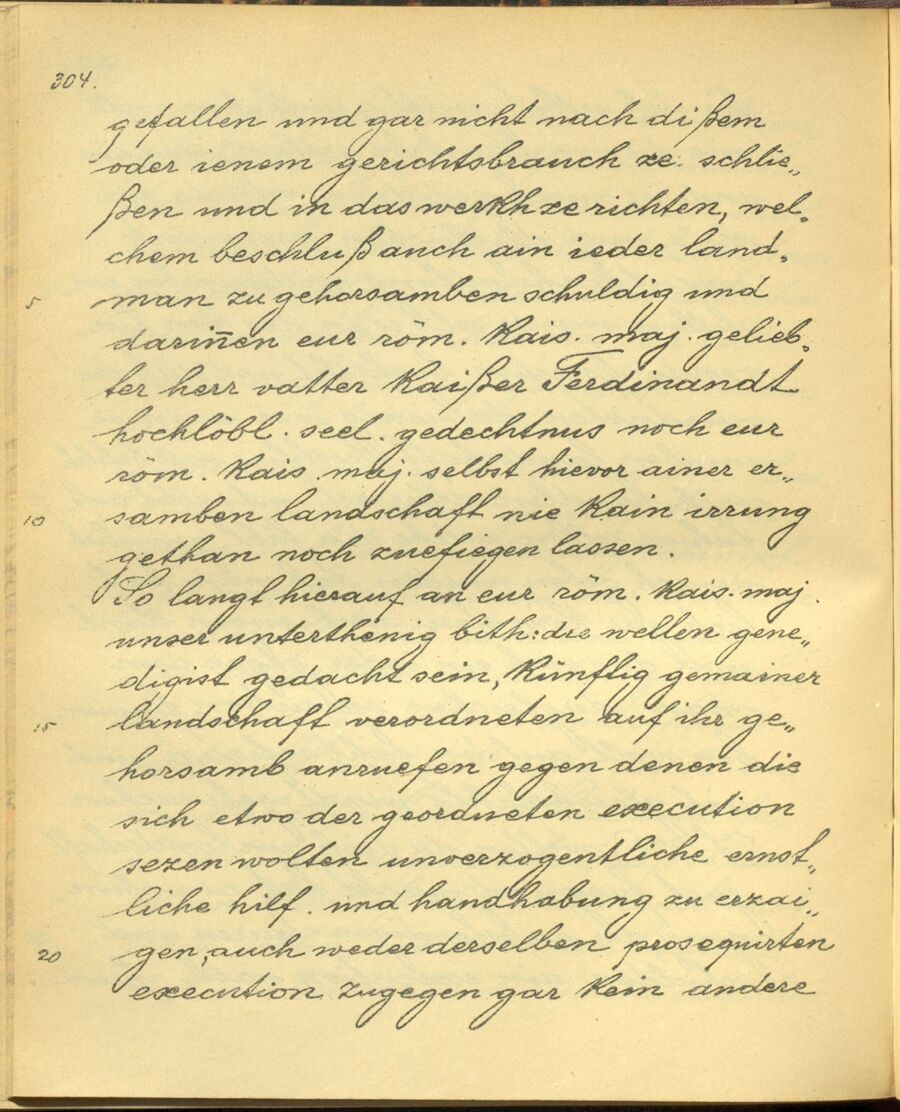 304.
gefallen und gar nicht nach dißem
oder ienem gerichtsbrauch ze schlie„
ßen und in das werkh ze richten, wel„
chem beschluß auch ain ieder land„
5 man zu gehorsamben schuldig und
darin̄en eur röm. kais. maj. gelieb„
ter herr vatter kaißer Ferdinandt
hochlöbl. seel. gedechtnus noch eur
röm. kais. maj. selbst hievor ainer er„
10 samben landschaft nie kain irrung
gethan noch zuefiegen lassen.
So langt hierauf an eur röm. kais. maj.
unser unterthenig bith: die wellen gene„
digist gedacht sein, künftig gemainer
15 landschaft verordneten auf ihr ge„
horsamb anruefen gegen denen die
sich etwo der geordneten execution
sezen wolten unverzogentliche ernst„
liche hilf. und handhabung zu erzai„
20 gen, auch weder derselben prosequirten
execution zugegen gar kein andere